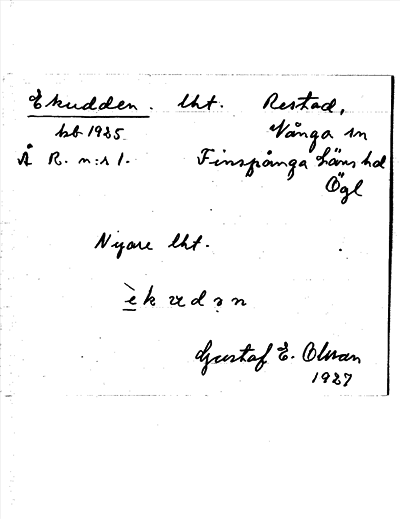 Ekudden. lht. Restad,
kb 1925. Vånga sn
Å R. n:s 1. Finspånga läns hd
Ögl
Nyare lht.
èkɯdən
Gustaf E. Olsson
1927